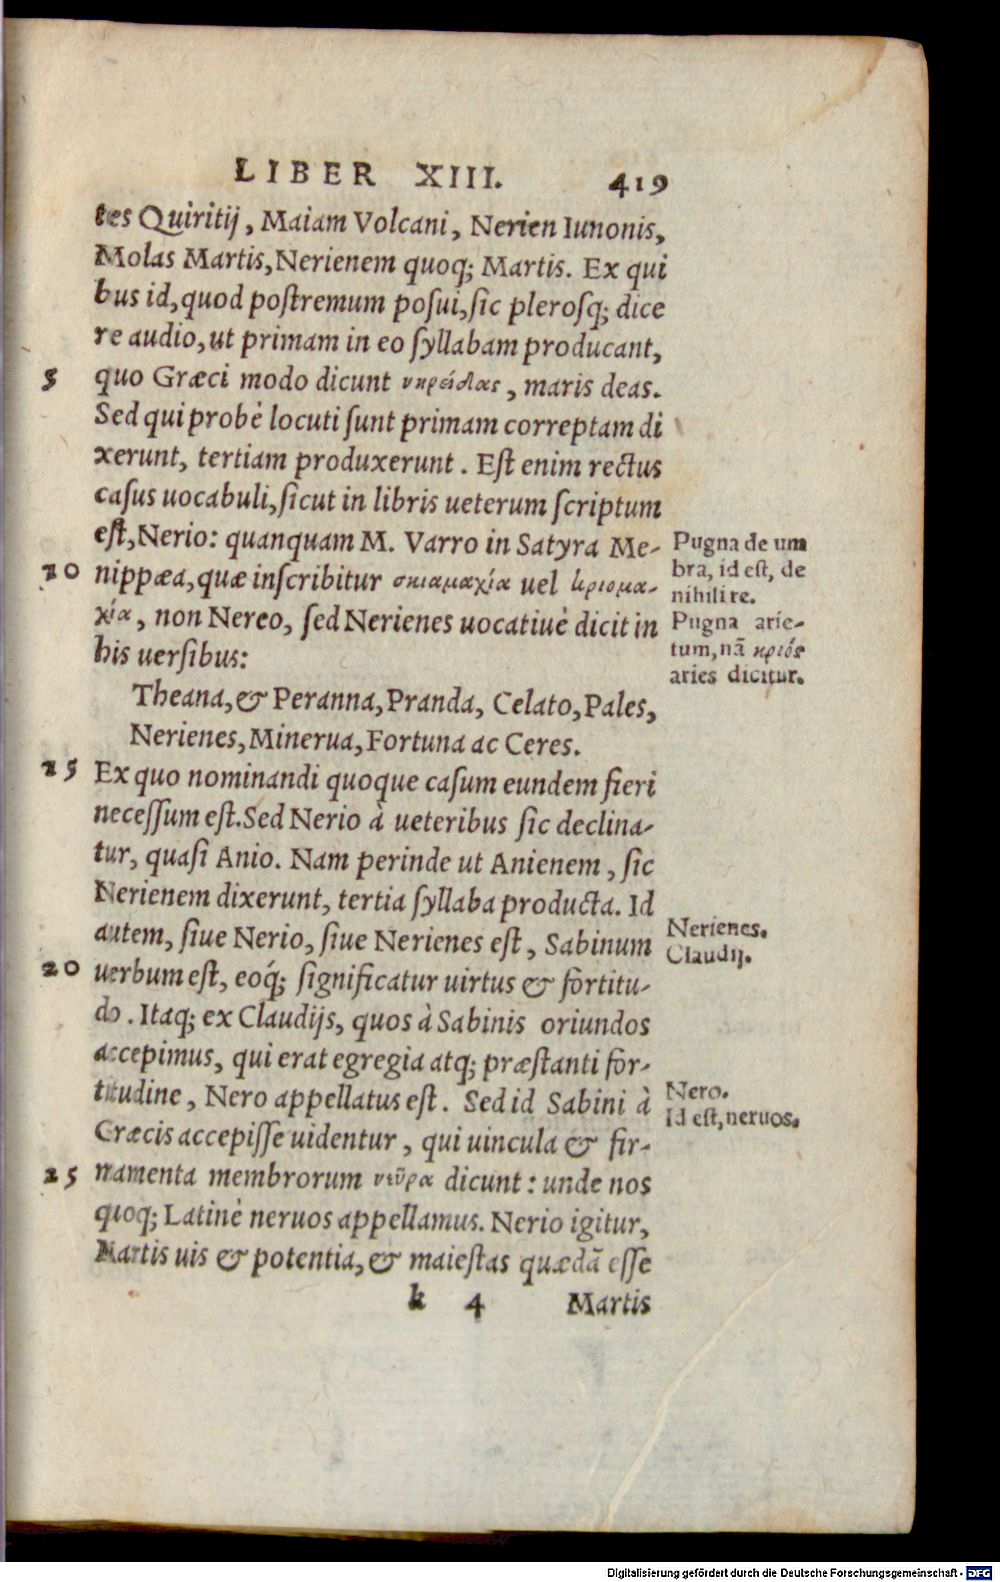 LIBER XIII. 419
tes Quiritij, Maiam Volcani, Nerien Iunonis,
Molas Martis, Nerienem quoq; Martis. Ex qui
bus id, quod postremum posui, sic plerosq; dice
re audio, ut primam in eo syllabam producant,
5 quo Græci modo dicunt νηρείδας, maris deas.
Sed qui probè locuti sunt primam correptam di
xerunt, tertiam produxerunt. Est enim rectus
casus uocabuli, sicut in libris ueterum scriptum
est, Nerio: quanquam M. Varro in Satyra Me-
10 nippæa, quæ inscribitur σκιαμαχία uel κριομα-
χία, non Nereo, sed Nerienes uocatiuè dicit in
his uersibus:
Theana, & Peranna, Pranda, Celato, Pales,
Nerienes, Minerua, Fortuna ac Ceres.
25 Ex quo nominandi quoque casum eundem fieri
necessum est. Sed Nerio à ueteribus sic declina-
tur, quasi Anio. Nam perinde ut Anienem, sic
Nerienem dixerunt, tertia syllaba producta. Id
autem, siue Nerio, siue Nerienes est, Sabinum
20 uerbum est, eoq́; significatur uirtus & fortitu-
do. Itaq; ex Claudijs, quos à Sabinis oriundos
accepimus, qui erat egregia atq; præstanti for-
titudine, Nero appellatus est. Sed id Sabini à
Græcis accepisse uidentur, qui uincula & fir-
25 mamenta membrorum νεῦρα dicunt: unde nos
quoq; Latinè neruos appellamus. Nerio igitur,
Martis uis & potentia, & maiestas quædã esse
k 4 Martis
Pugna de um
bra, id est, de
nihili re.
Pugna arie-
tum, nã κριός
aries dicitur.
Nerienes.
Claudij.
Nero.
Id est, neruos.
Digitalisierung gefördert durch die Deutsche Forschungsgemeinschaft - DFG